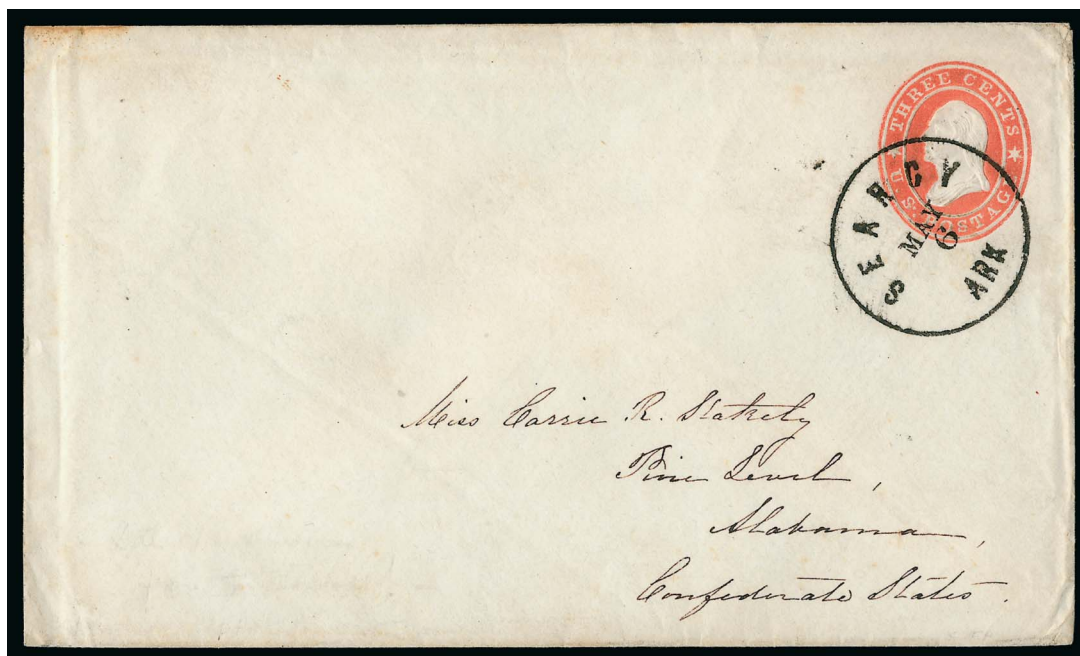 THREE CENTS
U.S. POSTAGE
SEARCY
ARK
MAY
6
Miss Carrie R. Stakely
Pine Level,
Alabama,
Confederate States.